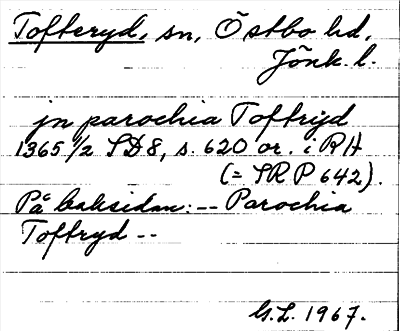 Tofteryd, sn, Östbo hd,
Jönk. l.
jn parochia Toftrijd
1365 1/2 SD 8, s. 620 or. i RA
(= SRP 642).
På baksidan: -- Parochia
Toftryd --
G.L. 1967.